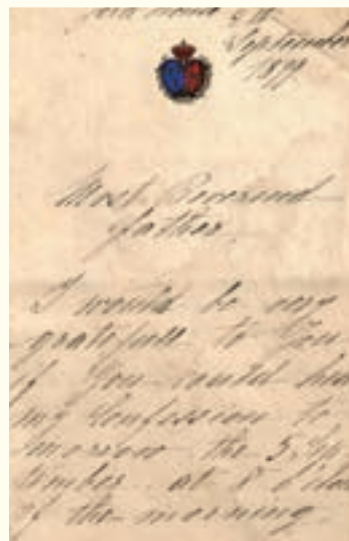 September
1899
Most Reverend
father.
I would be very
gratefull to You
if You could
my Confession to
morrow the 5 Sep
tember at 8
of the morning